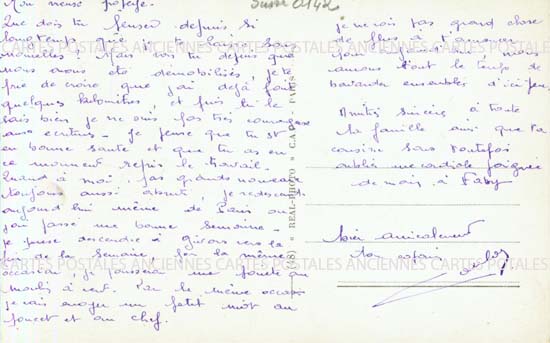 Mon vieux
Que dois tu penser depuis si
longtemps que je te laisse sans
nouvelles ? Mais vois tu depuis que
nous avons été démobilisés, je te
prie de croire que j'ai déjà fait
quelques kilomètres, et puis tu le
sais bien je ne suis pas très courageux
aux écritures. Je pense que tu es
en bonne santé et que tu as en
ce moment repris le travail.
Quand à moi, pas grands nouveau
toujours aussi je redescends
aujourd'hui même de Paris où
j'ai passé une bonne semaine.
je pense descendre à Givors vers la
fin de la semaine. Par la même
occasion je pousserai une pointe au
Par la même occasion
je vais envoyer un petit mot au
et au chef.
REAL-PHOTO « C.A.P. » PARIS
je ne vois pas grand chose
de plus à t'annoncer
nous
aurons tout le temps de
bavarder ensemble d'ici peu.
Amitiés sincères à toute
ta famille ainsi que ta
cousine sans toutefois
oublier une cordiale poignée
de main à Faby
bien amicalement
ton copain
CARTES POSTALES ANCIENNES CARTES POSTALES ANCIENNES CARTES POSTALES
CARTES POSTALES ANCIENNES CARTES POSTALES ANCIENNES CARTES POSTALES